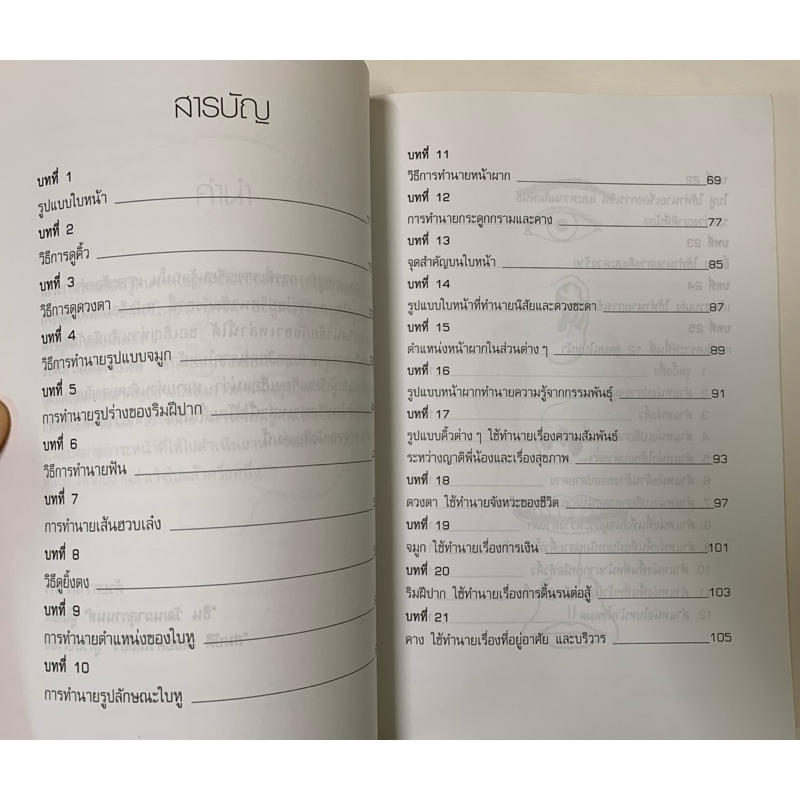 สารบัญ
บทที่ 1
รูปแบบใบหน้า
บทที่ 2
วิธีการดูคิ้ว
บทที่ 3
วิธีการดูดวงตา
บทที่ 4
วิธีการทำนายรูปแบบจมูก
บทที่ 5
การทำนายรูปร่างของริมฝีปาก
บทที่ 6
วิธีการทำนายฟัน
บทที่ 7
การทำนายเส้นฮวบเล่ง
บทที่ 8
วิธีดูยิ้งตง
บทที่ 9
การทำนายตำแหน่งของใบหู
บทที่ 10
การทำนายรูปลักษณะใบหู
บทที่ 11
วิธีการทำนายหน้าผาก 69
บทที่ 12
การทำนายกระดูกกรามและคาง 77
บทที่ 13
จุดสำคัญบนใบหน้า 85
บทที่ 14
รูปแบบใบหน้าที่ทำนายนิสัยและดวงชะตา 87
บทที่ 15
ตำแหน่งหน้าผากในส่วนต่าง ๆ 89
บทที่ 16
รูปแบบหน้าผากทำนายความรู้จากกรรมพันธุ์ 91
บทที่ 17
รูปแบบคิ้วต่าง ๆ ใช้ทำนายเรื่องความสัมพันธ์
ระหว่างญาติพี่น้องและเรื่องสุขภาพ 93
บทที่ 18
ดวงตา ใช้ทำนายจังหวะของชีวิต 97
บทที่ 19
จมูก ใช้ทำนายเรื่องการเงิน 101
บทที่ 20
ริมฝีปาก ใช้ทำนายเรื่องการดิ้นรนต่อสู้ 103
บทที่ 21
คาง ใช้ทำนายเรื่องที่อยู่อาศัย และบริวาร 105